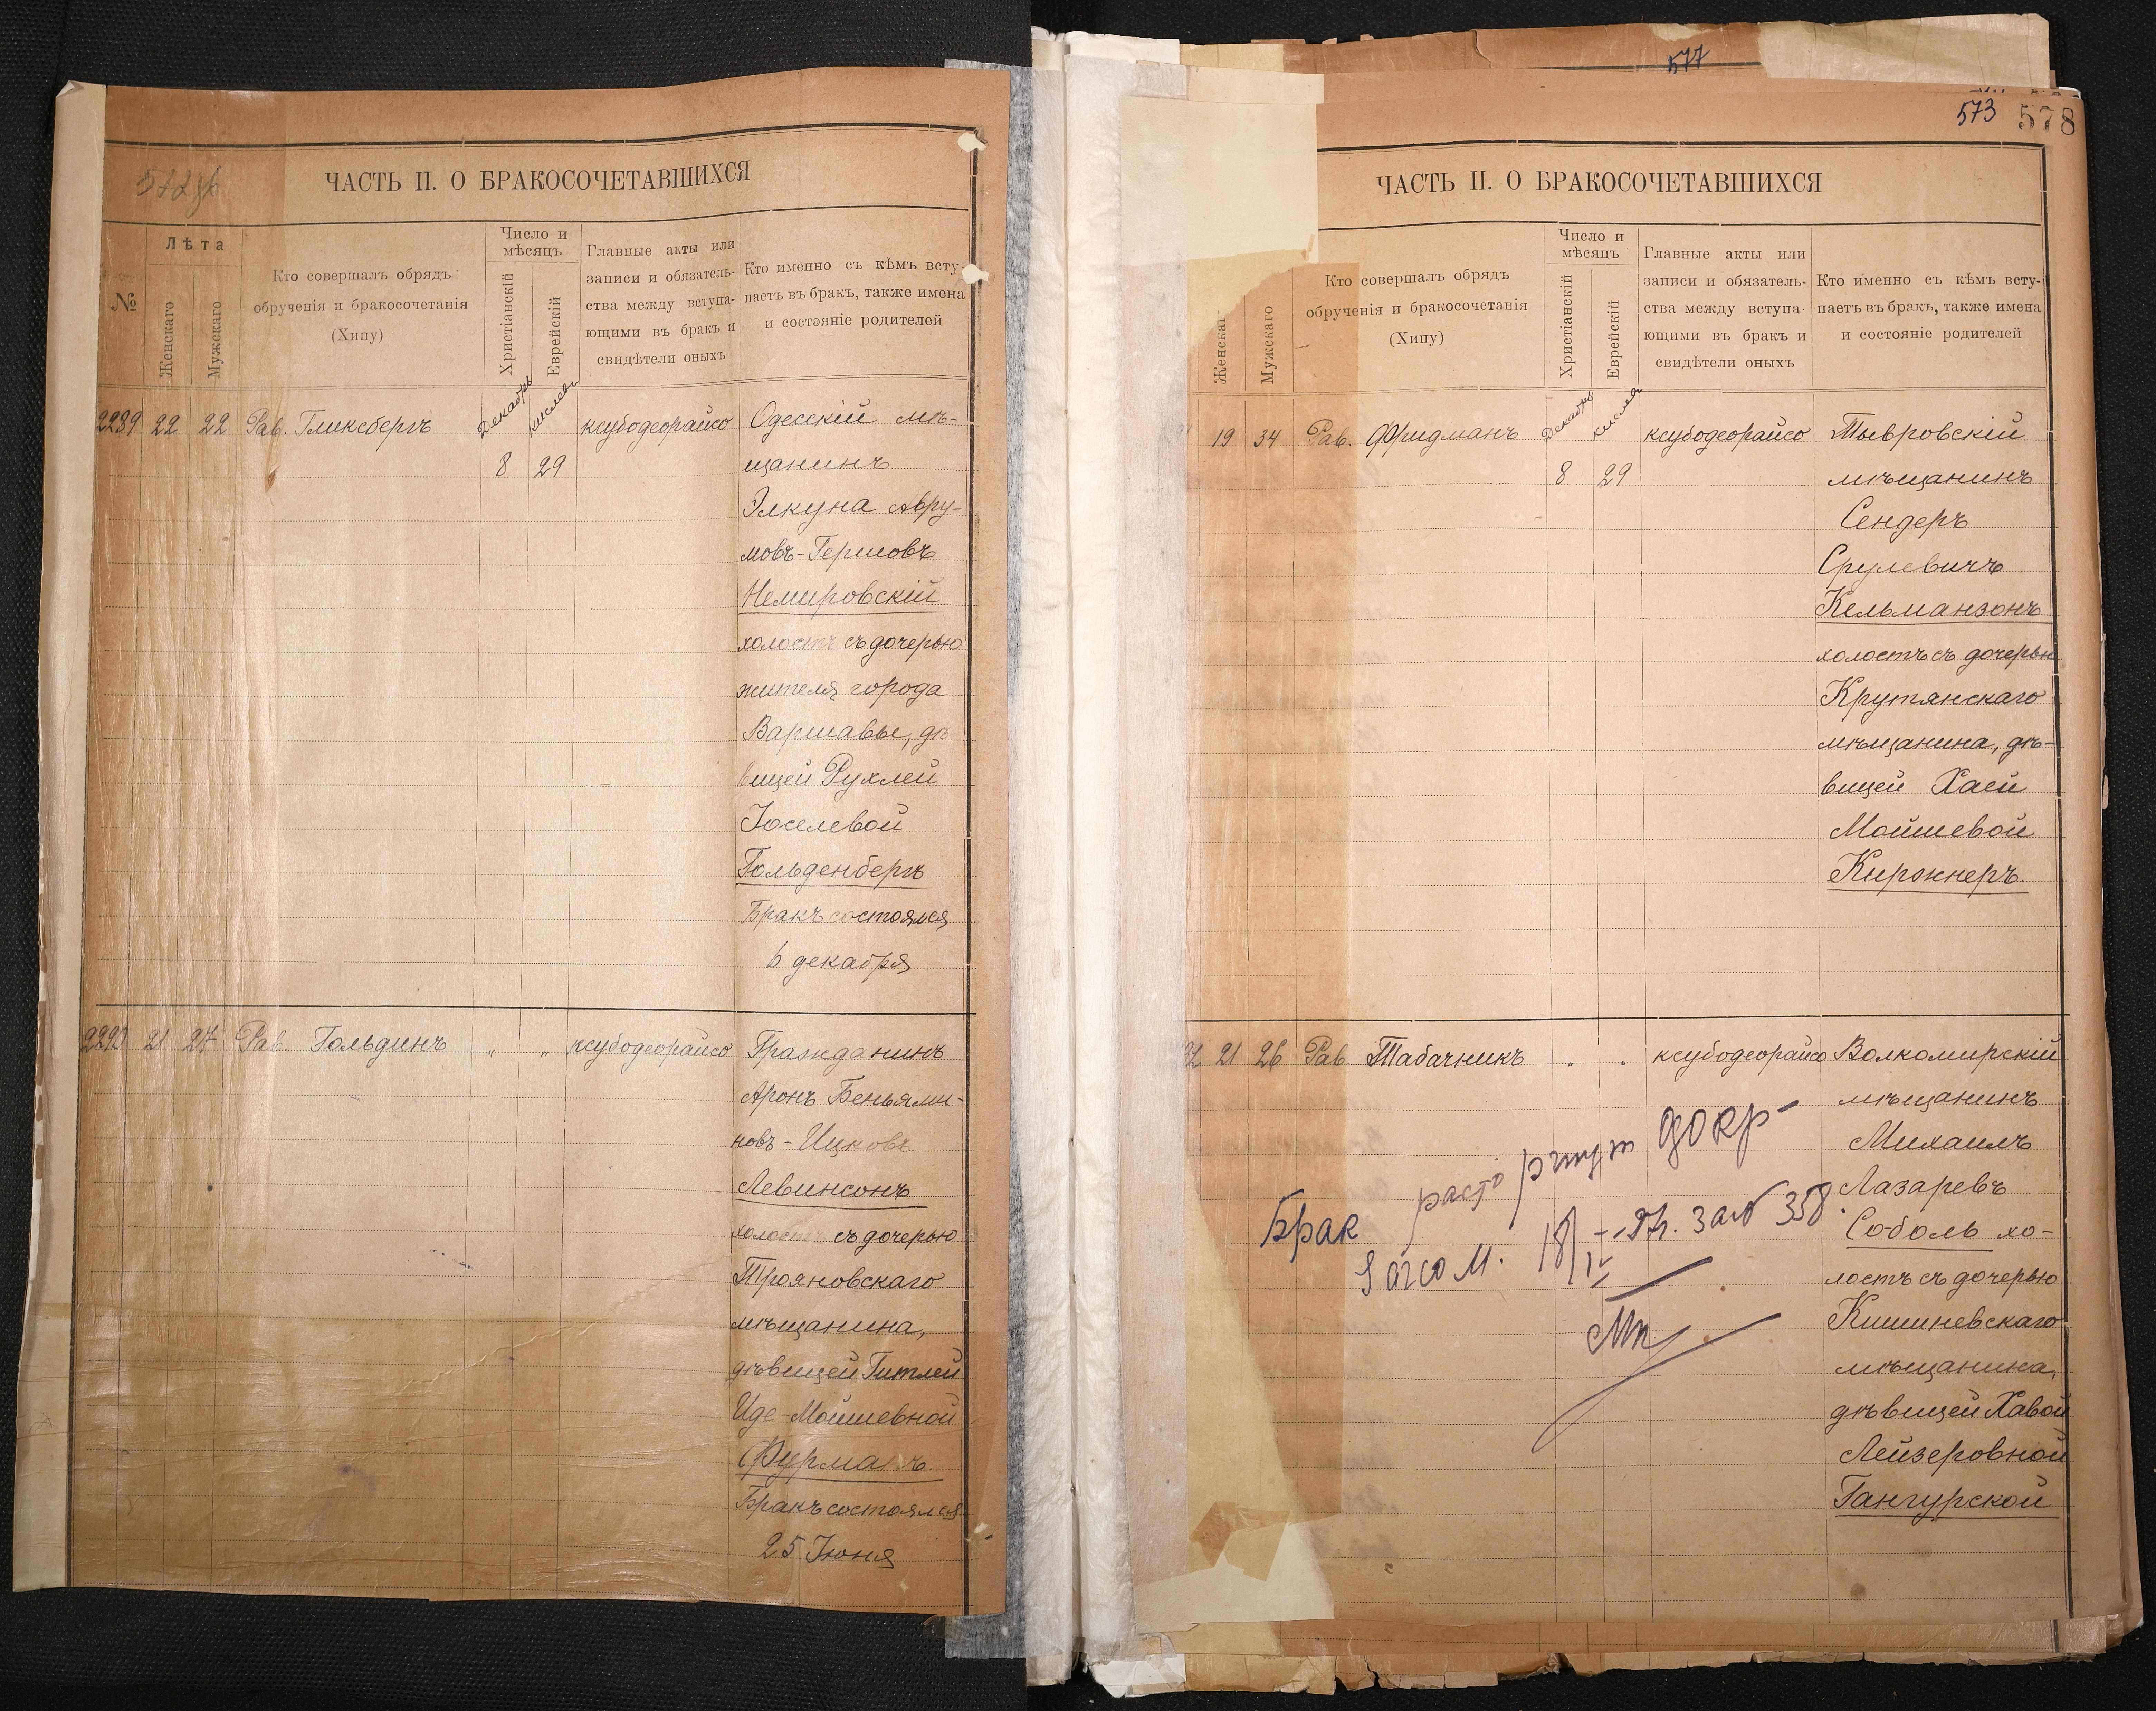 ЧАСТЬ II. О БРАКОСОЧЕТАВШИХСЯ
№
Лѣта
Женскаго
Мужскаго
Кто совершалъ обрядъ
обрученія и бракосочетанія
(Хипу)
Число и
мѣсяцъ
Христіанскій
Еврейскій
Главные акты или
записи и обязатель-
ства между вступа-
ющими въ бракъ и
свидѣтели оныхъ
Кто именно съ кѣмъ всту-
паетъ въ бракъ, также имена
и состояніе родителей
2289 22 22 Рав. Гликсбергъ Декабрь Кислев ксубодеорайсо Одесскій мѣ-
8 29 щанинъ
Элкуна Авру-
мовъ-Гершовъ
Немировскій
холостъ съ дочерью
жителя города
Варшавы, дѣ-
вицей Рухлей
Іоселевой
Гольденбергъ
Бракъ состоялся
6 декабря
2293 21 27 Рав. Гольдинъ " " ксубодеорайсо Гражданинъ
Аронъ Беньями-
новъ-Ицковъ
Левинсонъ
холостъ съ дочерью
Трояновскаго
мѣщанина,
дѣвицей Гитлей
Иде-Мошевной
Фурманъ
Бракъ состоялся
25 Іюня
577
573 578
ЧАСТЬ II. О БРАКОСОЧЕТАВШИХСЯ
Женскаг
Мужскаго
Кто совершалъ обрядъ
обрученія и бракосочетанія
(Хипу)
Число и
мѣсяцъ
Христіанскій
Еврейскій
Главные акты или
записи и обязатель-
ства между вступа-
ющими въ бракъ и
свидѣтели оныхъ
Кто именно съ кѣмъ всту-
паетъ въ бракъ, также имена
и состояніе родителей
19 34 Рав. Фридманъ Декабрь Кислев ксубодеорайсо Тывровскій
8 29 мѣщанинъ
Сендеръ
Срулевичъ
Кельманзонъ
холостъ съ дочерью
Крутянскаго
мѣщанина, дѣ-
вицей Хаей
Мойшевой
Киржнеръ
21 26 Рав. Табачникъ " " ксубодеорайсо Волкомирскій
мѣщанинъ
Михаилъ
Лазаревъ
Соболь хо-
лостъ съ дочерью
Кишиневскаго
мѣщанина,
дѣвицей Хавой
Лейзеровной
Гангурской
Брак расторгнут